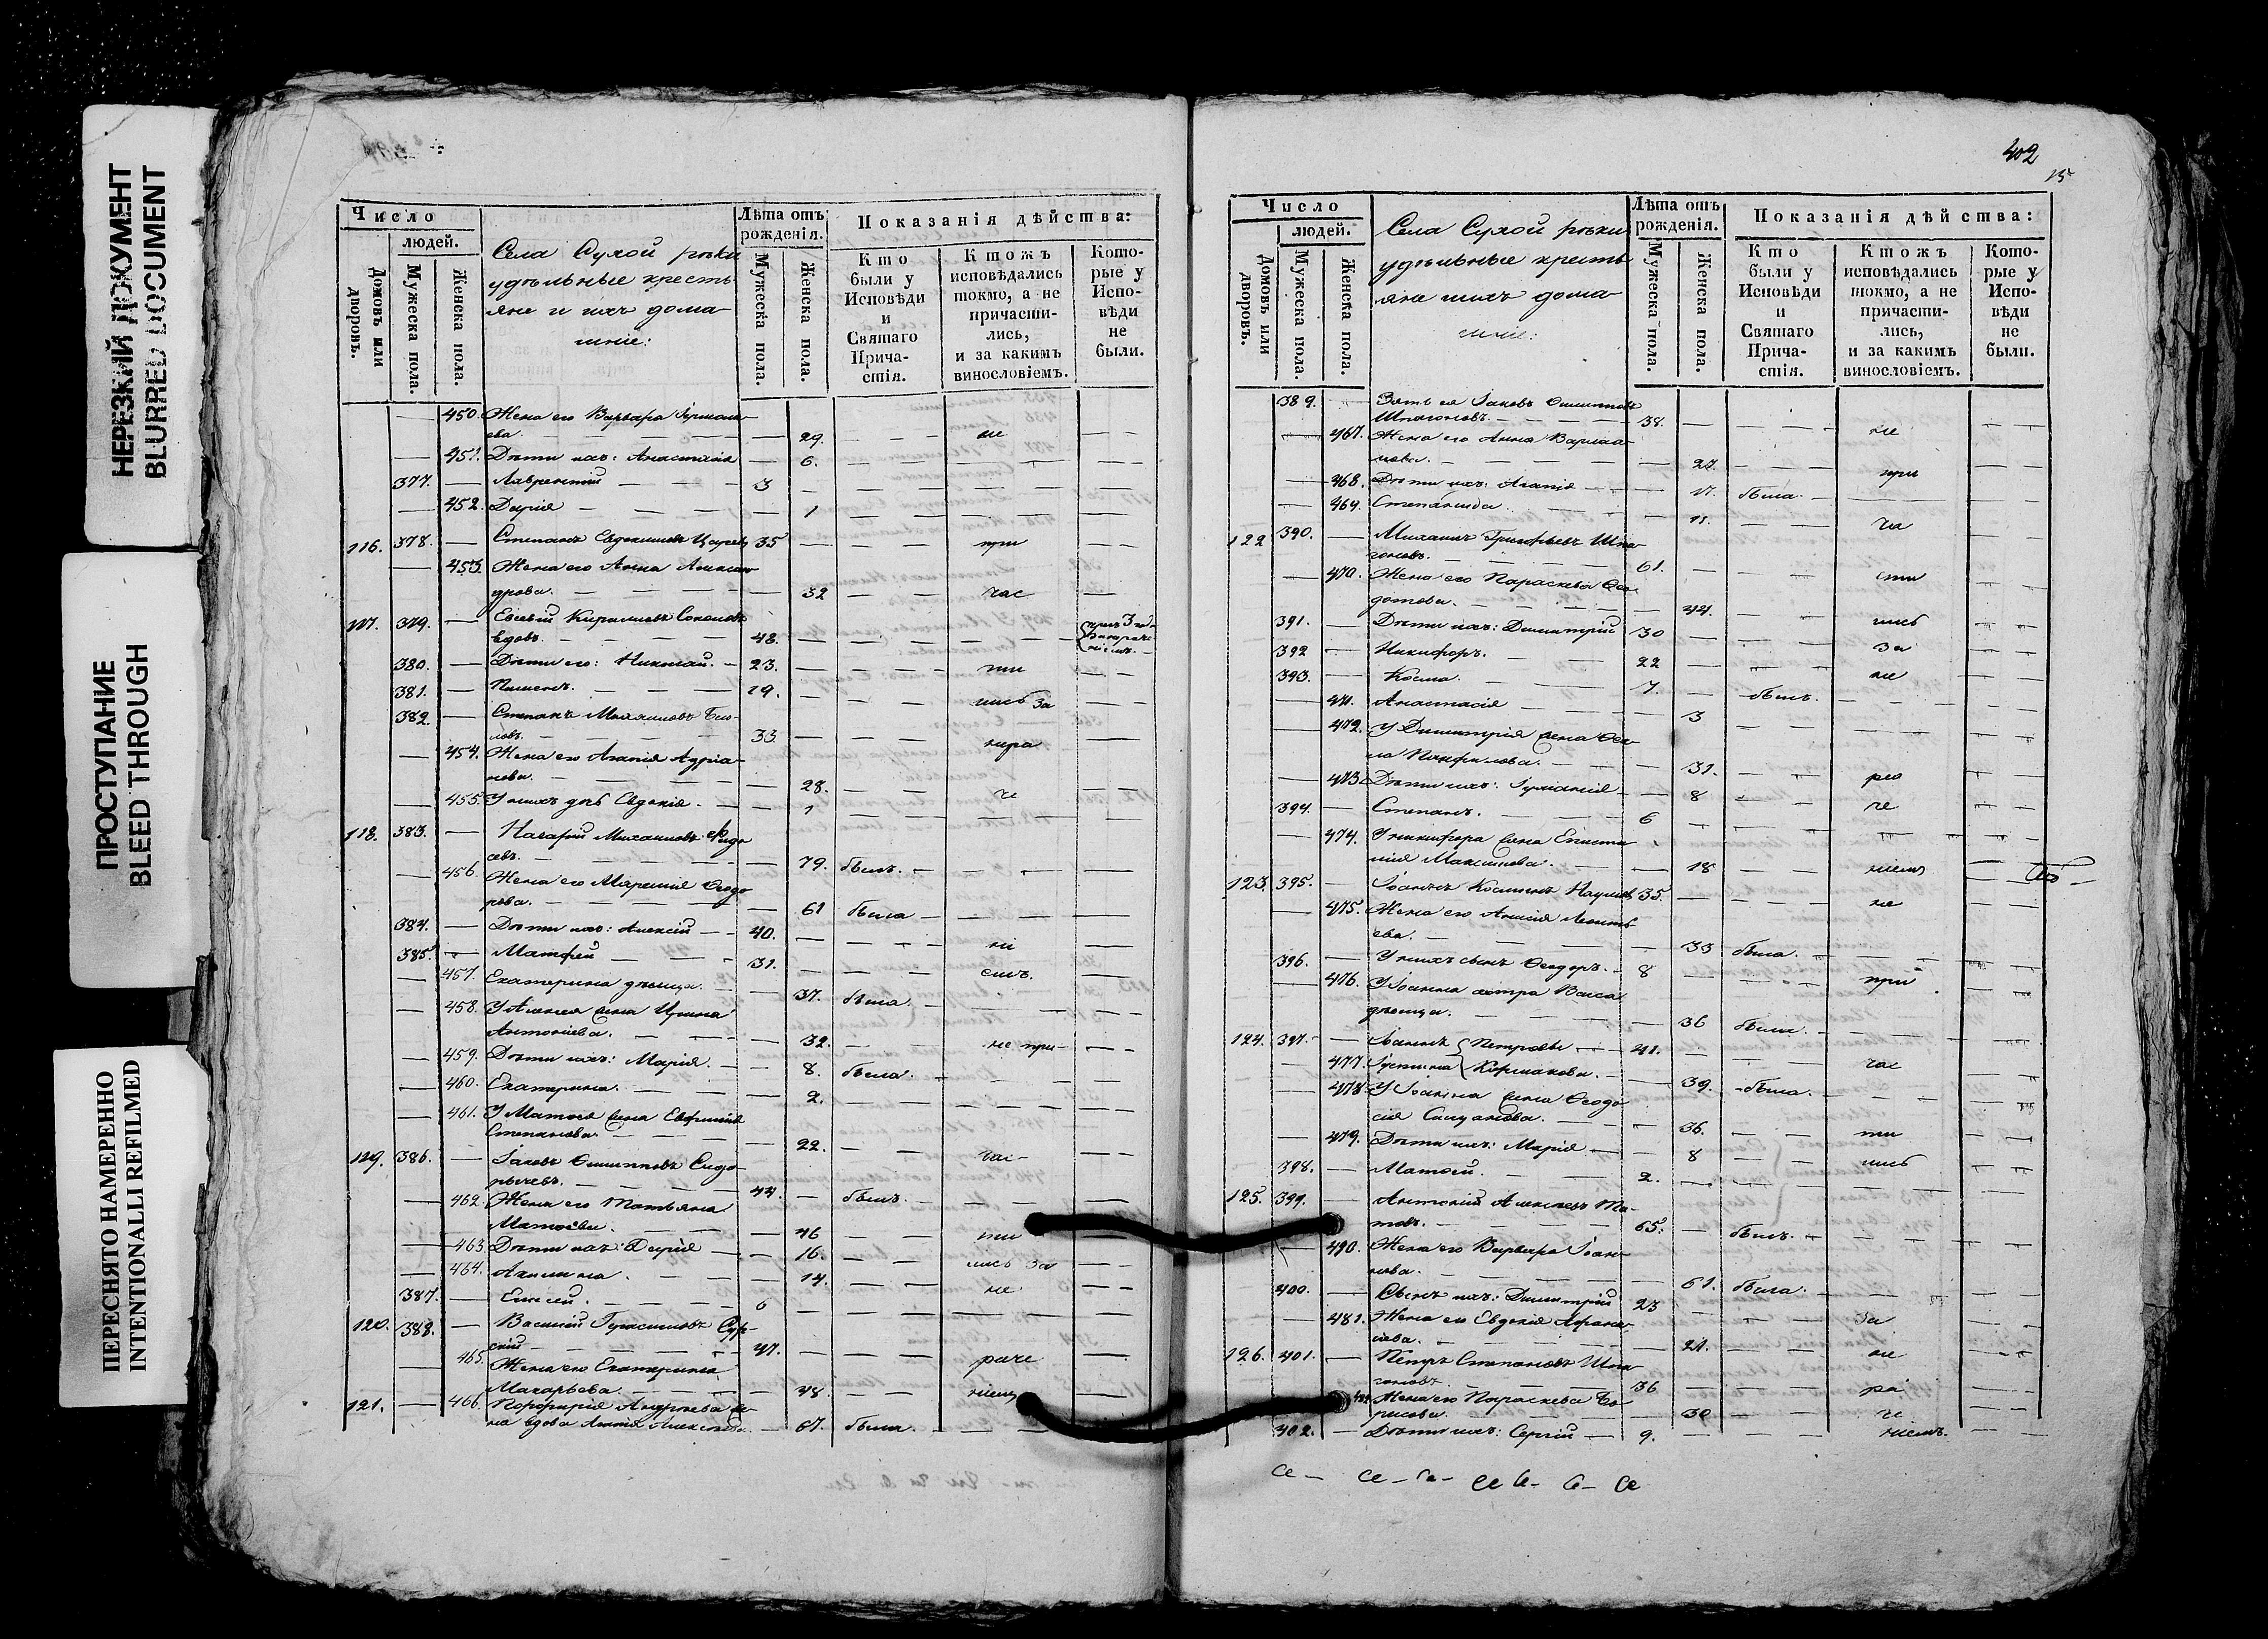 НЕРЕЗКИЙ ДОКУМЕНТ
BLURRED DOCUMENT
ПРОСТУПАНИЕ
BLEED THROUGH
ПЕРЕСНЯТО НАМЕРЕННО
INTENTIONALLI REFILMED
Число
людей.
Домовъ или дворовъ.
Мужеска пола.
Женска пола.
Села Сухой рѣки
удѣльные кресть-
яне и ихъ дома-
шніе:
Лѣта отъ
рожденія.
Мужеска пола.
Женска пола.
Показанія дѣйства:
Кто
были у
Исповѣди
и
Святаго
Прича-
стія.
Ктожъ
исповѣдались
токмо, а не
причасти-
лись,
и за какимъ
винословіемъ.
Кото-
рые у
Испо-
вѣди
не
были.
— 450. Жена его Варвара
ева. — 29. — не —
— 451. Дѣти ихъ: Анастасія — 6. —
377. — Лаврентій — 3 —
— 452. Дарія — 1 —
116. 378. — Степанъ Евдокимовъ 35 — при —
— 453. Жена его Анна Алексан-
дрова. — 32 — час —
117. 379. — Евсевій Кириловъ
вдовъ. — 48. —
380. — Дѣти его: Николай. — 23. — ти —
381. — Пименъ. — 19. — лись за
382. — Степанъ Михаиловъ
ловъ. — 33. — нера —
— 454. Жена его Агапія Адріа-
нова. — 28. — че —
— 455. У нихъ дочь Евдокія. — 1 —
118. 383. — Назарій Михаиловъ
севъ. — 79. былъ. —
— 456. Жена его Ѳеодо-
рова. — 61 была —
384. — Дѣти ихъ: Алексій — 40. — ні —
385. — Матфей — 31. — емъ. —
— 457. Екатерина дѣвица. — 37. была. —
— 458. У Алексея жена Ирина
Антоніева. — 32. — не при —
— 459. Дѣти ихъ: Марія. — 8. была. —
— 460. Екатерина. — 2. —
— 461. У Матѳея жена Евфимія
Степанова. — 22. — час —
119. 386. — Іаковъ Филипповъ Сидо-
рычевъ. — 44. — былъ. —
— 462. Жена его Татьяна
Матѳева. — 46 — ти
— 463. Дѣти ихъ: Дарія — 16. — лись за —
— 464. Акилина. — 14. — не —
387. — Елисей. — 6 —
120. 388. — Василій Герасимовъ Сур-
скій — 47. —
465. Жена его Екатерина
Макарьева. — 48. — раче —
121. — 466. Порфирія Андреева же-
на вдова Агапія Алексеева. — 67. была. —
402
15
Число
людей.
Домовъ или дворовъ.
Мужеска пола.
Женска пола.
Села Сухой рѣки
удѣльные кресть-
яне и ихъ дома-
шніе:
Лѣта отъ
рожденія.
Мужеска пола.
Женска пола.
Показанія дѣйства:
Кто
были у
Исповѣди
и
Святаго
Прича-
стія.
Ктожъ
исповѣдались
токмо, а не
причасти-
лись,
и за какимъ
винословіемъ.
Кото-
рые у
Испо-
вѣди
не
были.
389. — Зять ея Іаковъ Филипповъ
Шпагоновъ. — 38. — не —
— 467. Жена его Анна Варлаа-
мова. — — при —
— 468. Дѣти ихъ: Агапія — была. —
— 469. Степанида. — 11. — ча —
122 390. — Михаилъ Григорьевъ Шпа-
гоновъ. — 61. — сти —
— 470. Жена его Параскева Ѳео-
дотова. — 44. — лись —
391. — Дѣти ихъ: Димитрій 30 — за —
392 — Никифоръ. — 22 — не —
393. — Косма. — 7 — былъ. —
— 471. Анастасія — 3 —
— 472. У Димитрія жена Ѳек-
ла Панфилова. — 31. — ра —
— 473. Дѣти ихъ: — 8 — че —
394. — Степанъ. — 6 —
— 474. У Никифора жена Еписти-
мія Максимова. — 18 — ніемъ —
123. 395. — Іоаннъ Косминъ Наумовъ 35. — не —
— 475. Жена его Анисія Леонть-
ева. — 33 была. —
396. — У нихъ сынъ Ѳеодоръ. — 8 — при —
— 476. У Іоанна сестра Васса
дѣвица. — 36 была. —
124. 397. — Іоаннъ Петровы — 41. — час
— 477. Іустина Кормакова. — 39. — была. —
— 478. У Іоанна жена Ѳеодо-
сія Самуилова. — 36. — ти —
— 479. Дѣти ихъ: Марія — 8 — лись
398. — Матѳей. — 2. —
125. 399. — Антоній Алексеевъ
товъ. — 65. — былъ. —
— 480. Жена его Варвара Іоан-
нова. — 61. была. —
400. — Сынъ ихъ: Димитрій 23 — за —
— 481. Жена его Евдокія Афана-
сіева. — 21. — не —
126. 401. — Петръ Степановъ Шпа-
гоновъ. — 36 — ра —
482 Жена его Параскева Бо-
рисова. — 30 — че —
402. — Дѣти ихъ: Сергій — 9. — ніемъ. —